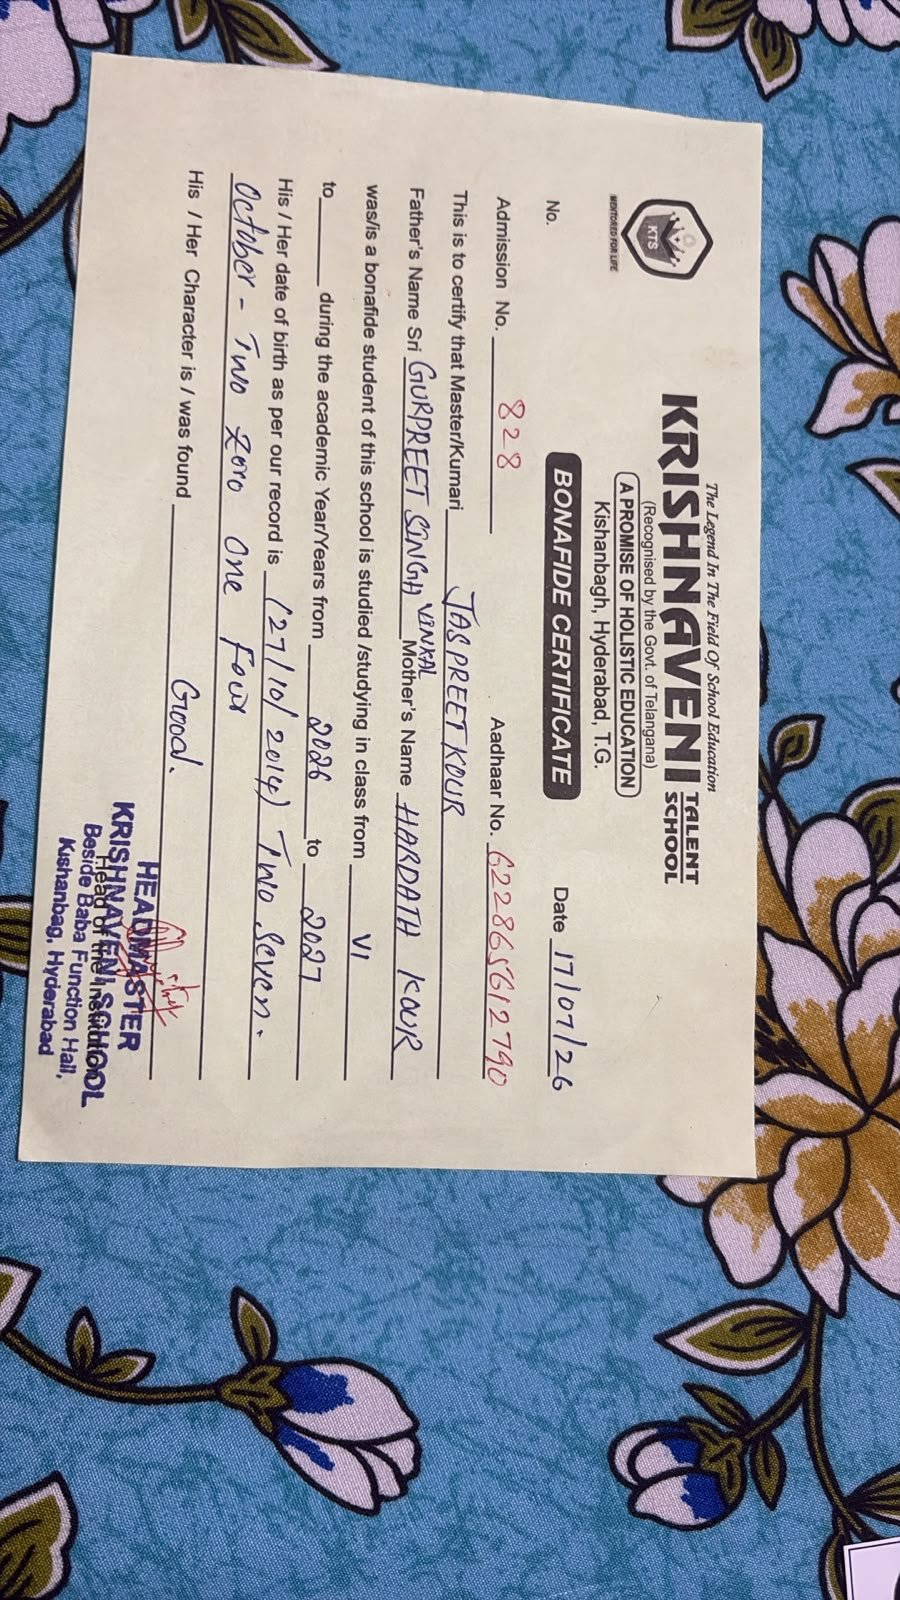 The Legend In The Field Of School Education
KRISHNAVENI TALENT SCHOOL
(Recognised by the Govt. of Telangana)
A PROMISE OF HOLISTIC EDUCATION
Kishanbagh, Hyderabad, T.G.
KTS
MENTORED FOR LIFE
BONAFIDE CERTIFICATE
No. Date 17/07/26
Admission No. 828 Aadhaar No. 622865612790
This is to certify that Master/Kumari JASPREET KOUR
Father's Name Sri GURPREET SINGH VINKAL Mother's Name HARDATH KOUR
was/is a bonafide student of this school is studied /studying in class from VI
to during the academic Year/Years from 2026 to 2027
His / Her date of birth as per our record is (27/10/2014) Two Seven.
October - Two Zero One Four
His / Her Character is / was found Good.
HEADMASTER
KRISHNAVENI SCHOOL
Head of the Institution
Beside Baba Function Hall,
Kishanbag, Hyderabad